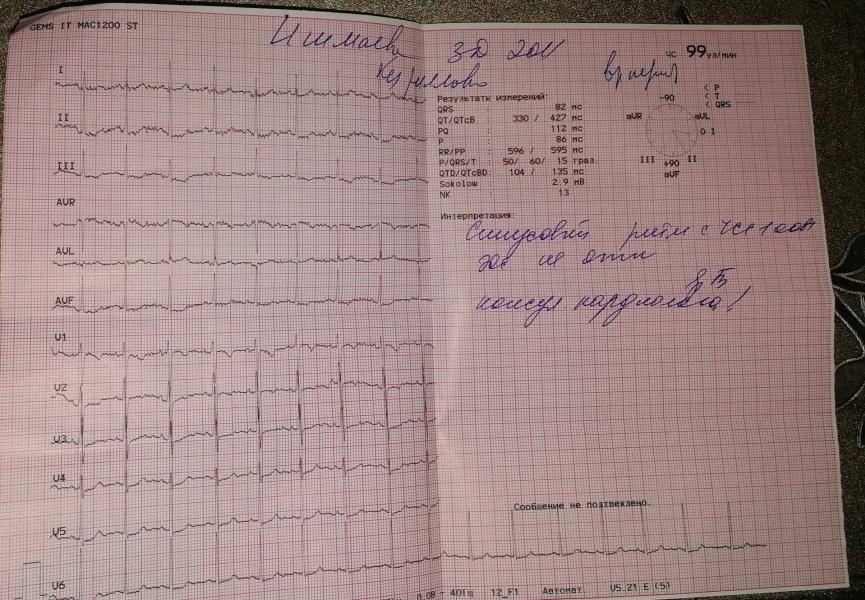 GEMS IT MAC1200 ST
ЧС 99уд/мин
I
II
III
AUR
AUL
AUF
U1
U2
U3
U4
U5
U6
Результаты измерений:
QRS : 82 мс
QT/QTcB : 330 / 427 мс
PQ : 112 мс
P : 86 мс
RR/PP : 596 / 595 мс
P/QRS/T : 50/ 60/ 15 град.
QTD/QTcBD: 104 / 135 мс
Sokolow : 2.9 мВ
NK : 13
< P
< T
< QRS
-90
aUR
aUL
0 I
III
+90
II
aUF
Интерпретация:
Синусовый ритм с ЧСС
консул. кардиолога!
Сообщение не подтверждено.
0.08 - 40Гц 12_F1 Автомат. U5.21 E (5)